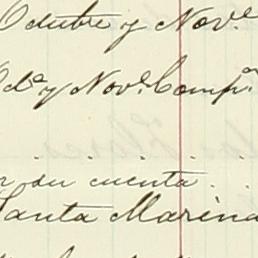 Octubre y Nov.e
Od.e y Nov.e Comp.n
r su cuenta
Santa Marina